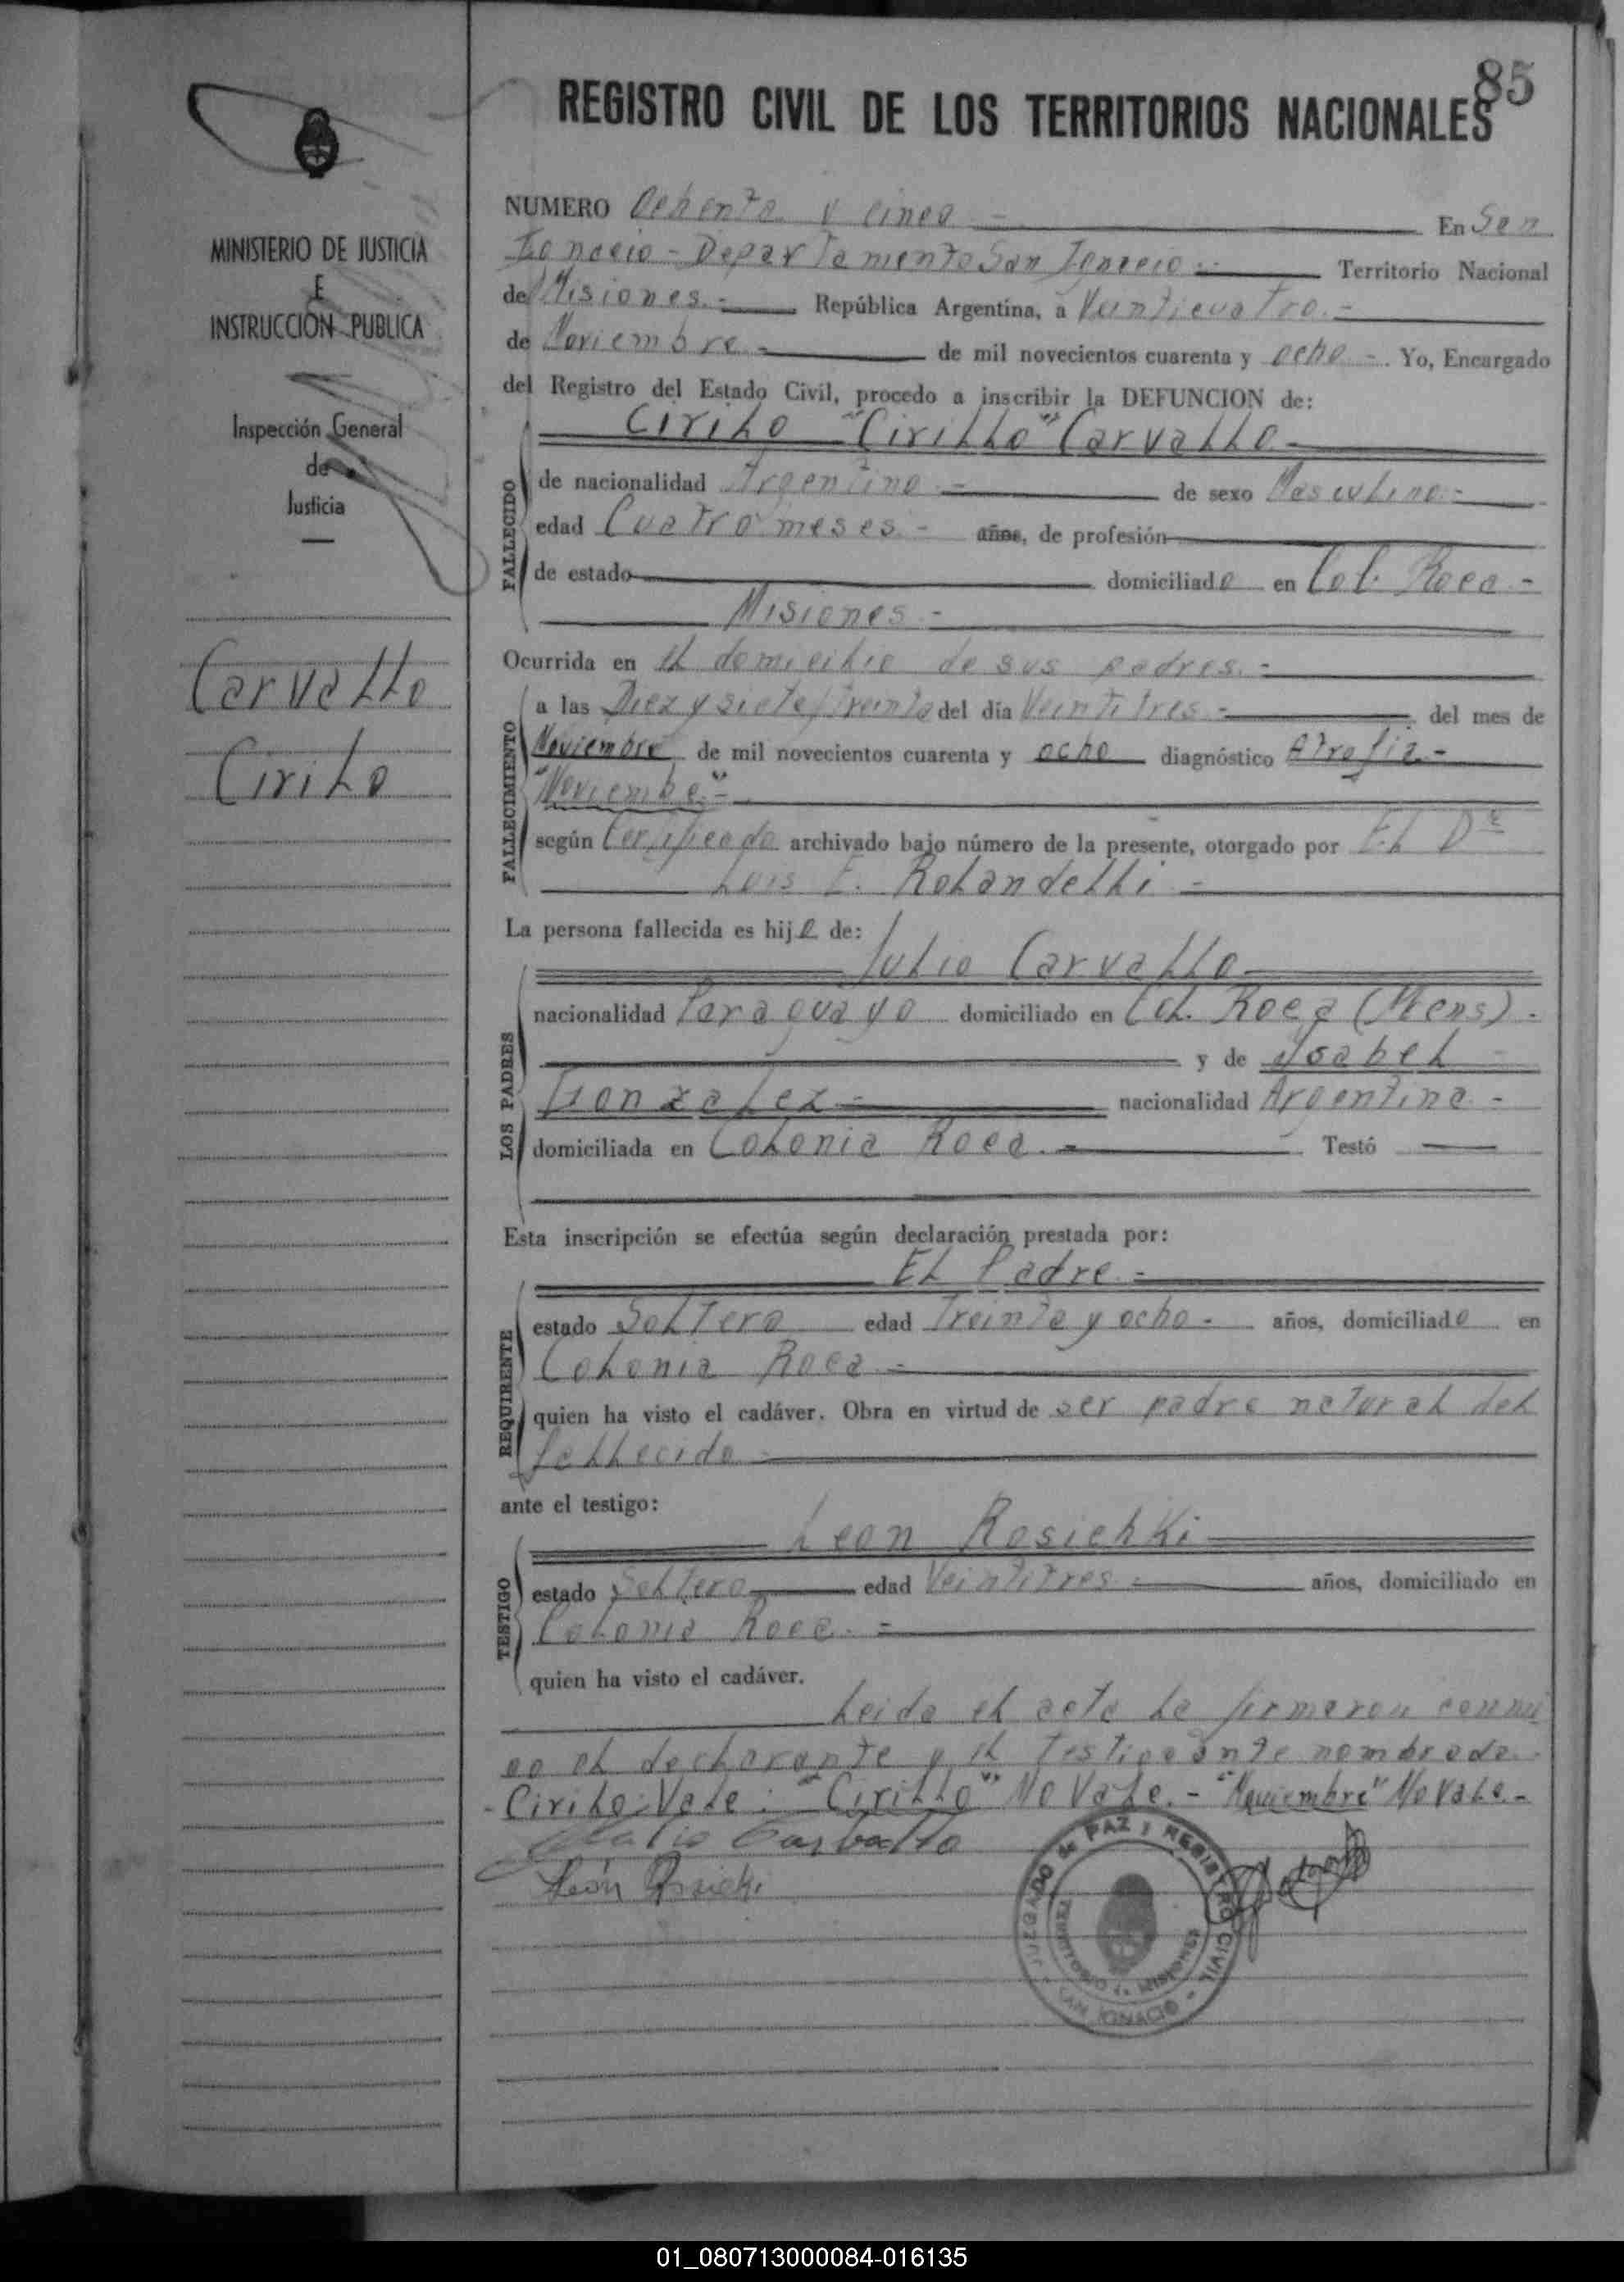 85
REGISTRO CIVIL DE LOS TERRITORIOS NACIONALES
MINISTERIO DE JUSTICIA
E
INSTRUCCIÓN PUBLICA
Inspección General
de
Justicia
Carvallo
Cirilo
NUMERO Ochenta y cinco - En San
Ignacio - Departamento San Ignacio - Territorio Nacional
de Misiones.- República Argentina, a Veinticuatro.-
de Noviembre - de mil novecientos cuarenta y ocho -. Yo, Encargado
del Registro del Estado Civil, procedo a inscribir la DEFUNCION de:
Cirilo "Cirillo" Carvallo -
FALLECIDO
de nacionalidad Argentino - de sexo Masculino -
edad Cuatro meses - años, de profesión
de estado domiciliado en Col. Roca -
Misiones -
Ocurrida en el domicilio de sus padres.-
FALLECIMIENTO
a las Diez y siete/treinta del día Veintitres - del mes de
Noviembre de mil novecientos cuarenta y ocho diagnóstico Atrofia -
"Noviembe" -
según Certificado archivado bajo número de la presente, otorgado por El Dr
Luis E. Rolandelli -
La persona fallecida es hijo de:
Julio Carvallo
LOS PADRES
nacionalidad Paraguayo domiciliado en Col. Roca (Mens) -
y de Isabel -
Gonzalez - nacionalidad Argentina -
domiciliada en Colonia Roca - Testó
Esta inscripción se efectúa según declaración prestada por:
El Padre -
REQUIRENTE
estado Soltero edad Treinta y ocho - años, domiciliado en
Colonia Roca -
quien ha visto el cadáver. Obra en virtud de ser padre natural del
fallecido -
ante el testigo:
Leon Rosichki
TESTIGO
estado Soltero edad Veintitres - años, domiciliado en
Colonia Roca. -
quien ha visto el cadáver.
Leida el acta la firmaron conmi
go el declarante y el testigo ante nombrado.
- Cirilo: Vale: "Cirillo" No Vale. - "Noviembre" No Vale. -
Julio Carballo
León
JUZGADO de PAZ y REGISTRO CIVIL
TERRITORIO de MISIONES
SAN IGNACIO
01_080713000084-016135